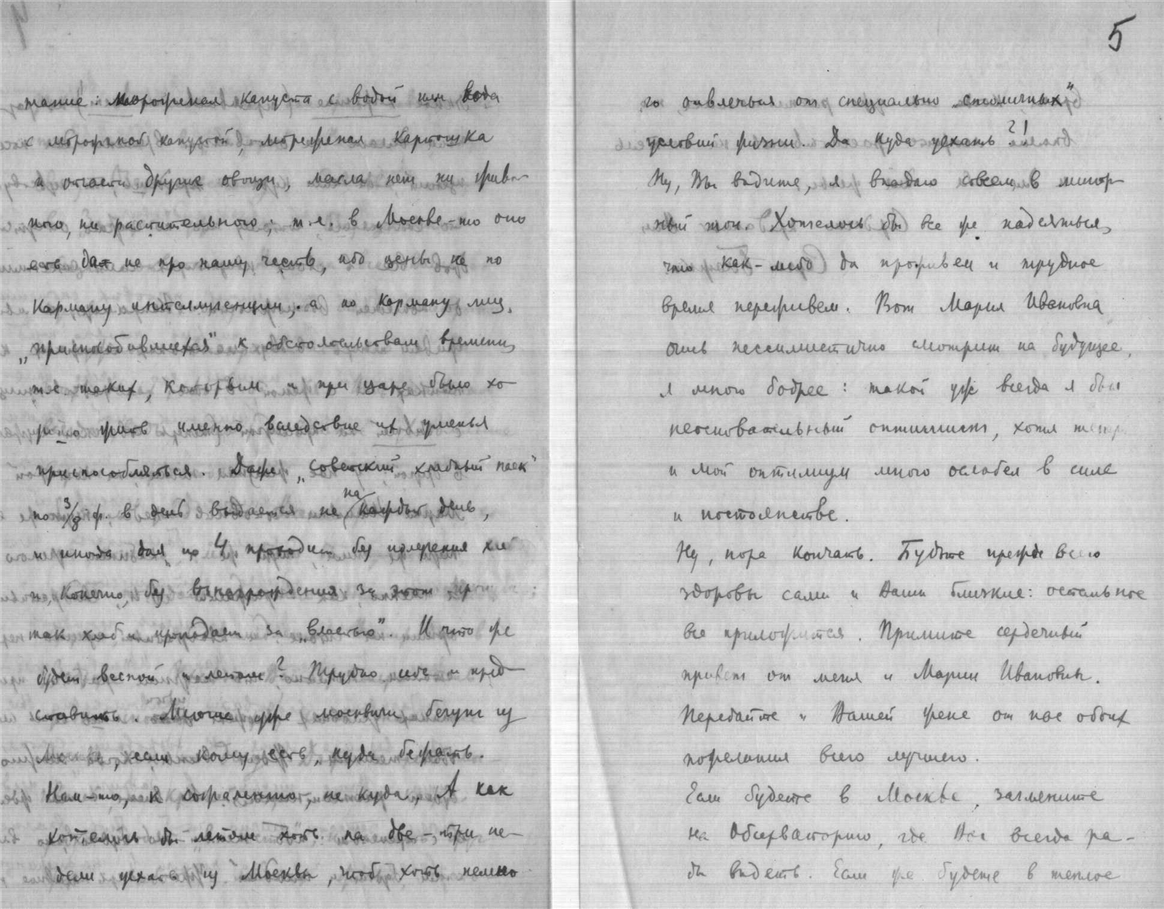 тание: мороженая капуста с водой или вода
с мороженой капустой, мороженая картошка
и отчасти другие овощи, масла нет ни живот
ного, ни растительного: т.е. в Москве-то оно
есть да не про нашу честь, ибо цены не по
карману интеллигенции, а по карману лиц,
„приспособившихся" к обстоятельствам времени,
т.е. таких, которым и при царе было хо
рошо жить именно вследствие их уменья
приспособляться. Даже „советский хлебный паек"
по 3/8 ф. в день выдается не на каждый день,
и иногда дня по 4 проходит без получения хле
и, конечно, без вознаграждения за этот
так хлеб и пропадает за „властью". И что же
будет весной и летом? Трудно себе и пред
ставить. Многие уже москвичи бегут из
если кому есть, куда бежать.
Нам-то, к сожалению, не куда, А как
хотелось бы летом хоть на две-три не
дели уехать из Москвы, чтоб хоть немно
5
го отвлечься от специально „столичных"
условий жизни. Да куда уехать?!
Ну, Вы видите, я впадаю совсем в минор
ный тон. Хотелось бы все же надеяться,
что как-либо да проживем и трудное
время переживем. Вот Мария Ивановна
очень пессимистично смотрит на будущее,
я много бодрее: такой уж всегда я был
неосновательный оптимист, хотя теперь
и мой оптимизм много ослабел в силе
и постоянстве.
Ну, пора кончать. Будьте прежде всего
здоровы сами и Ваши близкие: остальное
все приложится. Примите сердечный
привет от меня и Марии Ивановны.
Передайте и Вашей жене от нас обоих
пожелания всего лучшего.
Если будете в Москве, загляните
на Обсерваторию, где Вас всегда ра-
ды видеть. Если же будете в теплое